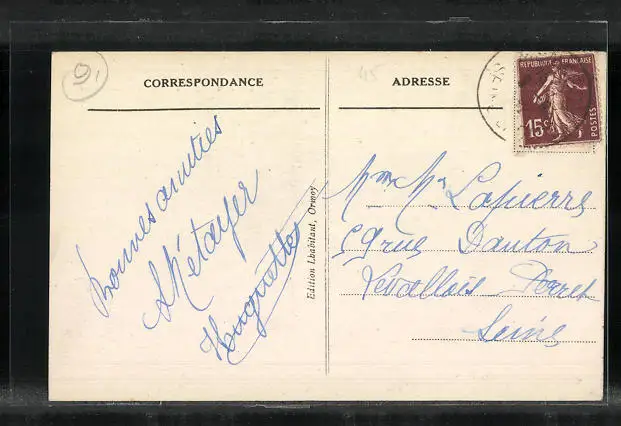 9,
CORRESPONDANCE
ADRESSE
45
REPUBLIQUE FRANÇAISE
15c
POSTES
Bonnes amitiés
Métayer
Huguette
Edition Lhabitant, Ormoy
Lapierre
Danton
Levallois Perret
Seine